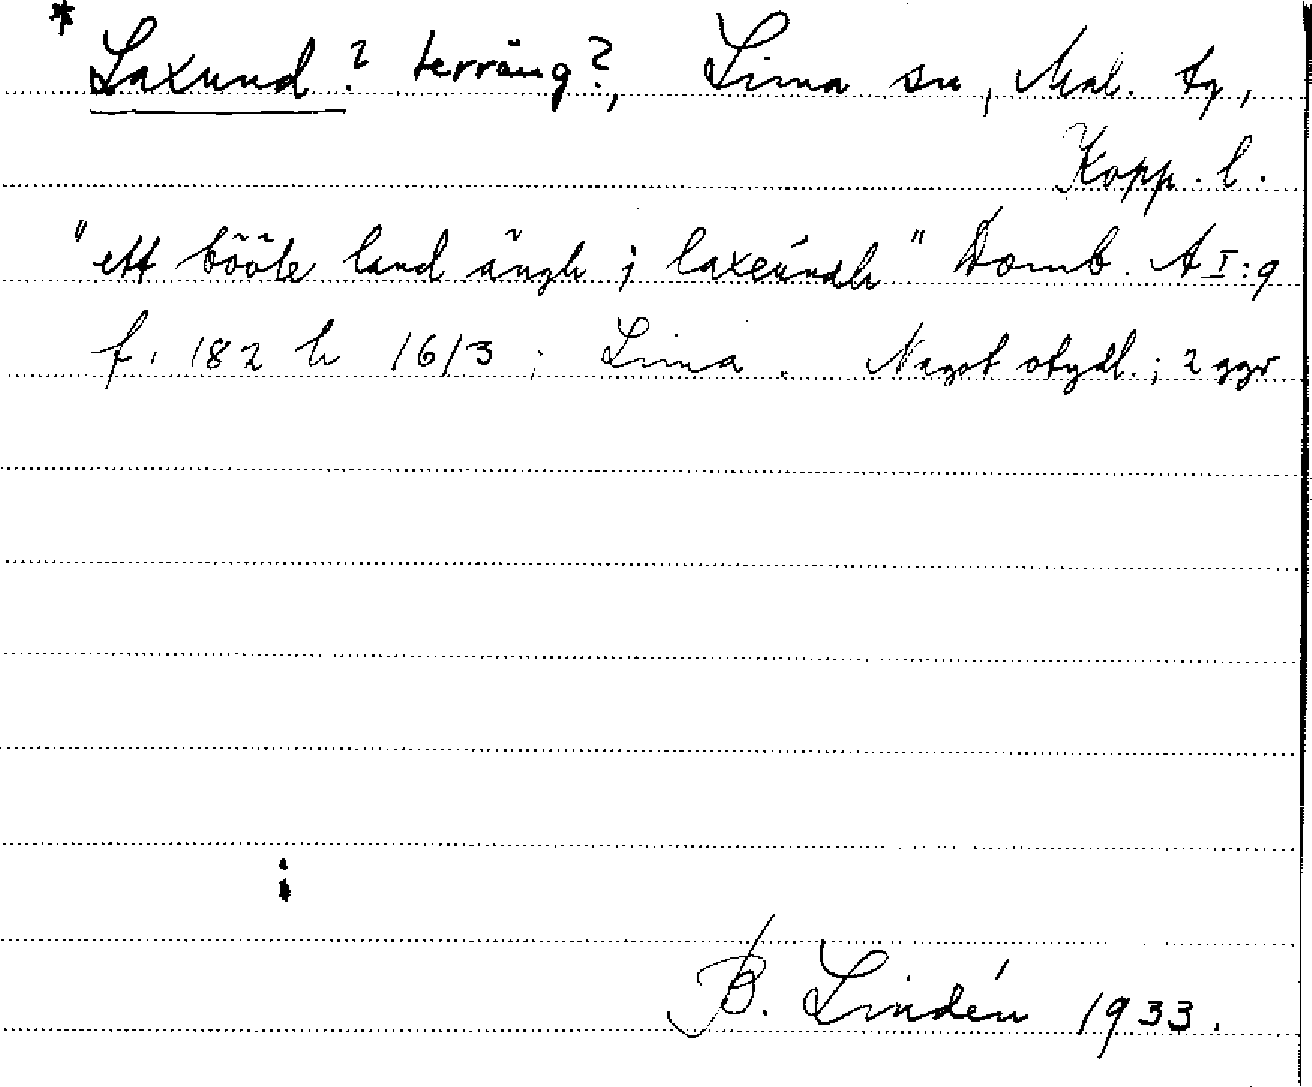 * Laxund? terräng?, Lima sn, Mal. tg,
Kopp. l.
"ett bööle land ängh j laxeúndh" Domb. A I:9
f. 182 h 16/3; Lima. Något otydl.; 2 ggr
B. Lindén 1933.